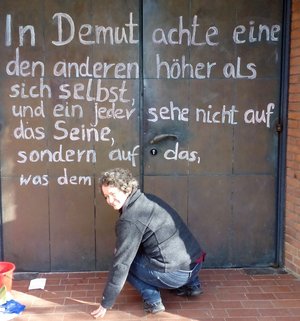 In Demut achte eine
den anderen höher als
sich selbst,
und ein jeder sehe nicht auf
das Seine,
sondern auf das,
was dem